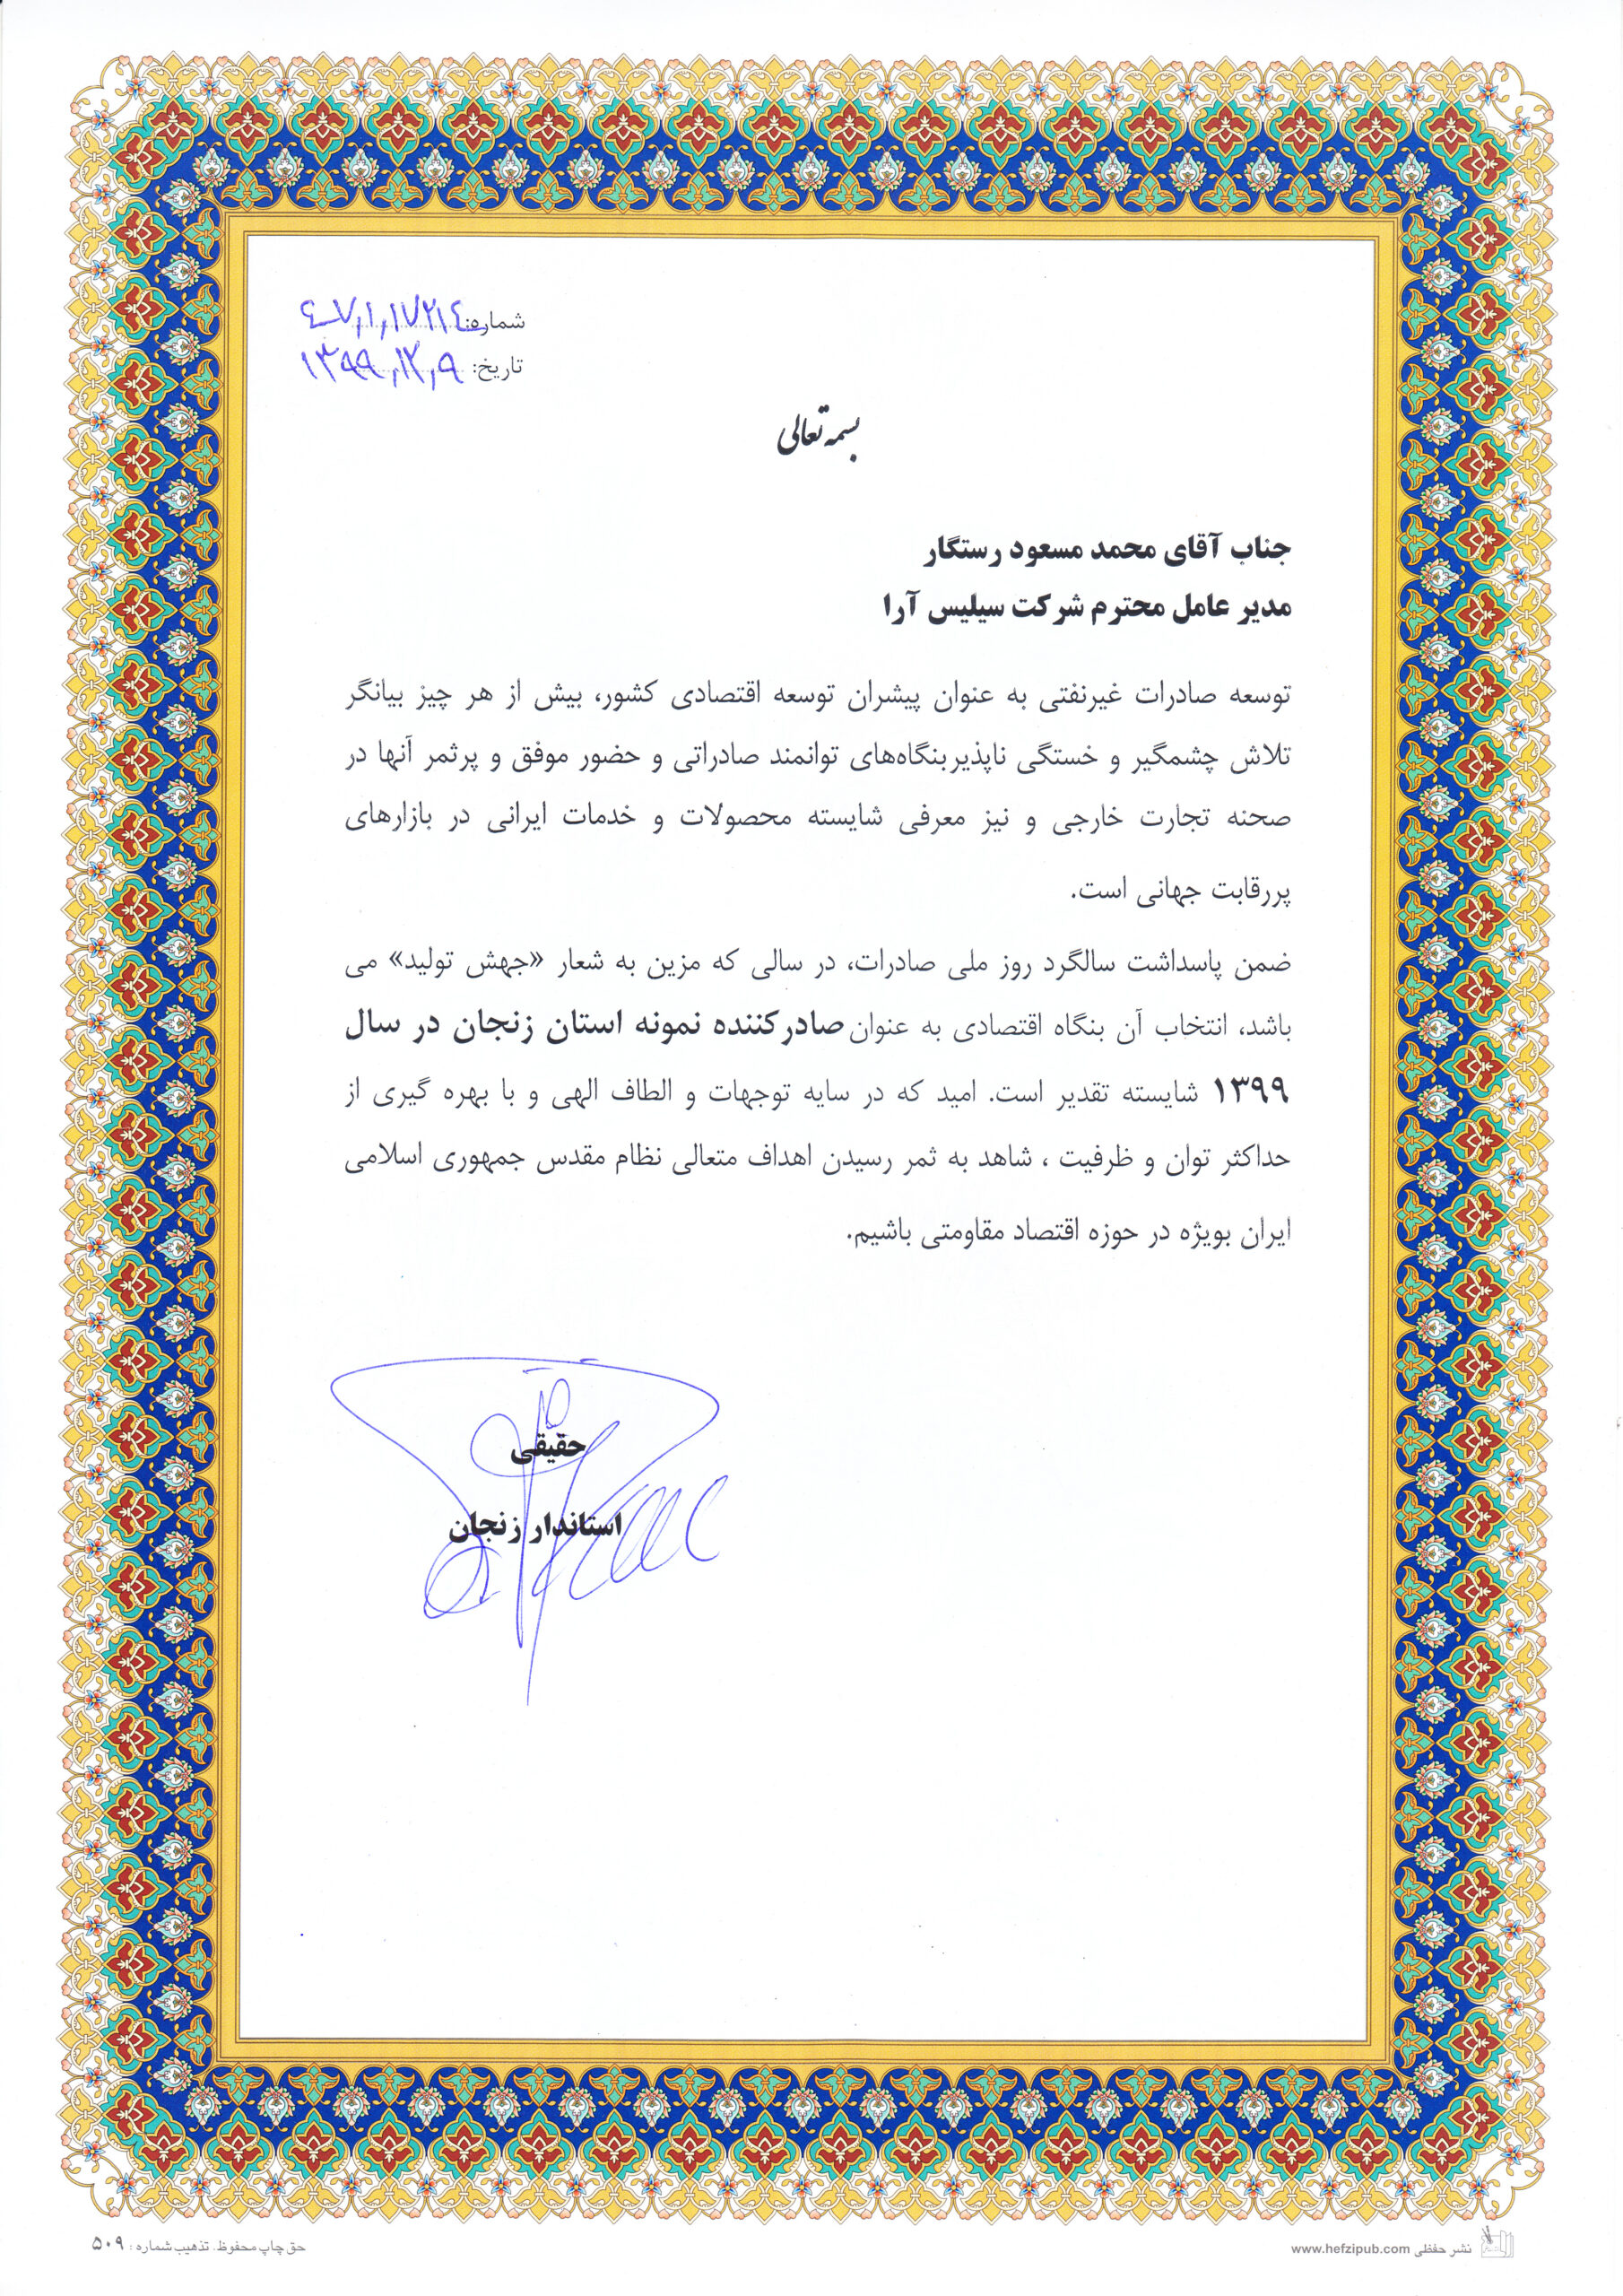 شماره: ٤٠٧٫١٫١٧٢١٤
تاریخ: ۱۳۹۹٫۱۲٫۹
بسمه تعالی
جناب آقای محمد مسعود رستگار
مدیر عامل محترم شرکت سیلیس آرا
توسعه صادرات غیرنفتی به عنوان پیشران توسعه اقتصادی کشور، بیش از هر چیز بیانگر
تلاش چشمگیر و خستگی ناپذیربنگاه‌های توانمند صادراتی و حضور موفق و پرثمر آنها در
صحنه تجارت خارجی و نیز معرفی شایسته محصولات و خدمات ایرانی در بازارهای
پررقابت جهانی است.
ضمن پاسداشت سالگرد روز ملی صادرات، در سالی که مزین به شعار «جهش تولید» می
باشد، انتخاب آن بنگاه اقتصادی به عنوان صادرکننده نمونه استان زنجان در سال
۱۳۹۹ شایسته تقدیر است. امید که در سایه توجهات و الطاف الهی و با بهره گیری از
حداکثر توان و ظرفیت ، شاهد به ثمر رسیدن اهداف متعالی نظام مقدس جمهوری اسلامی
ایران بویژه در حوزه اقتصاد مقاومتی باشیم.
حقیقی
استاندار زنجان
نشر حفظی www.hefzipub.com
حق چاپ محفوظ. تذهیب شماره : ۵۰۹